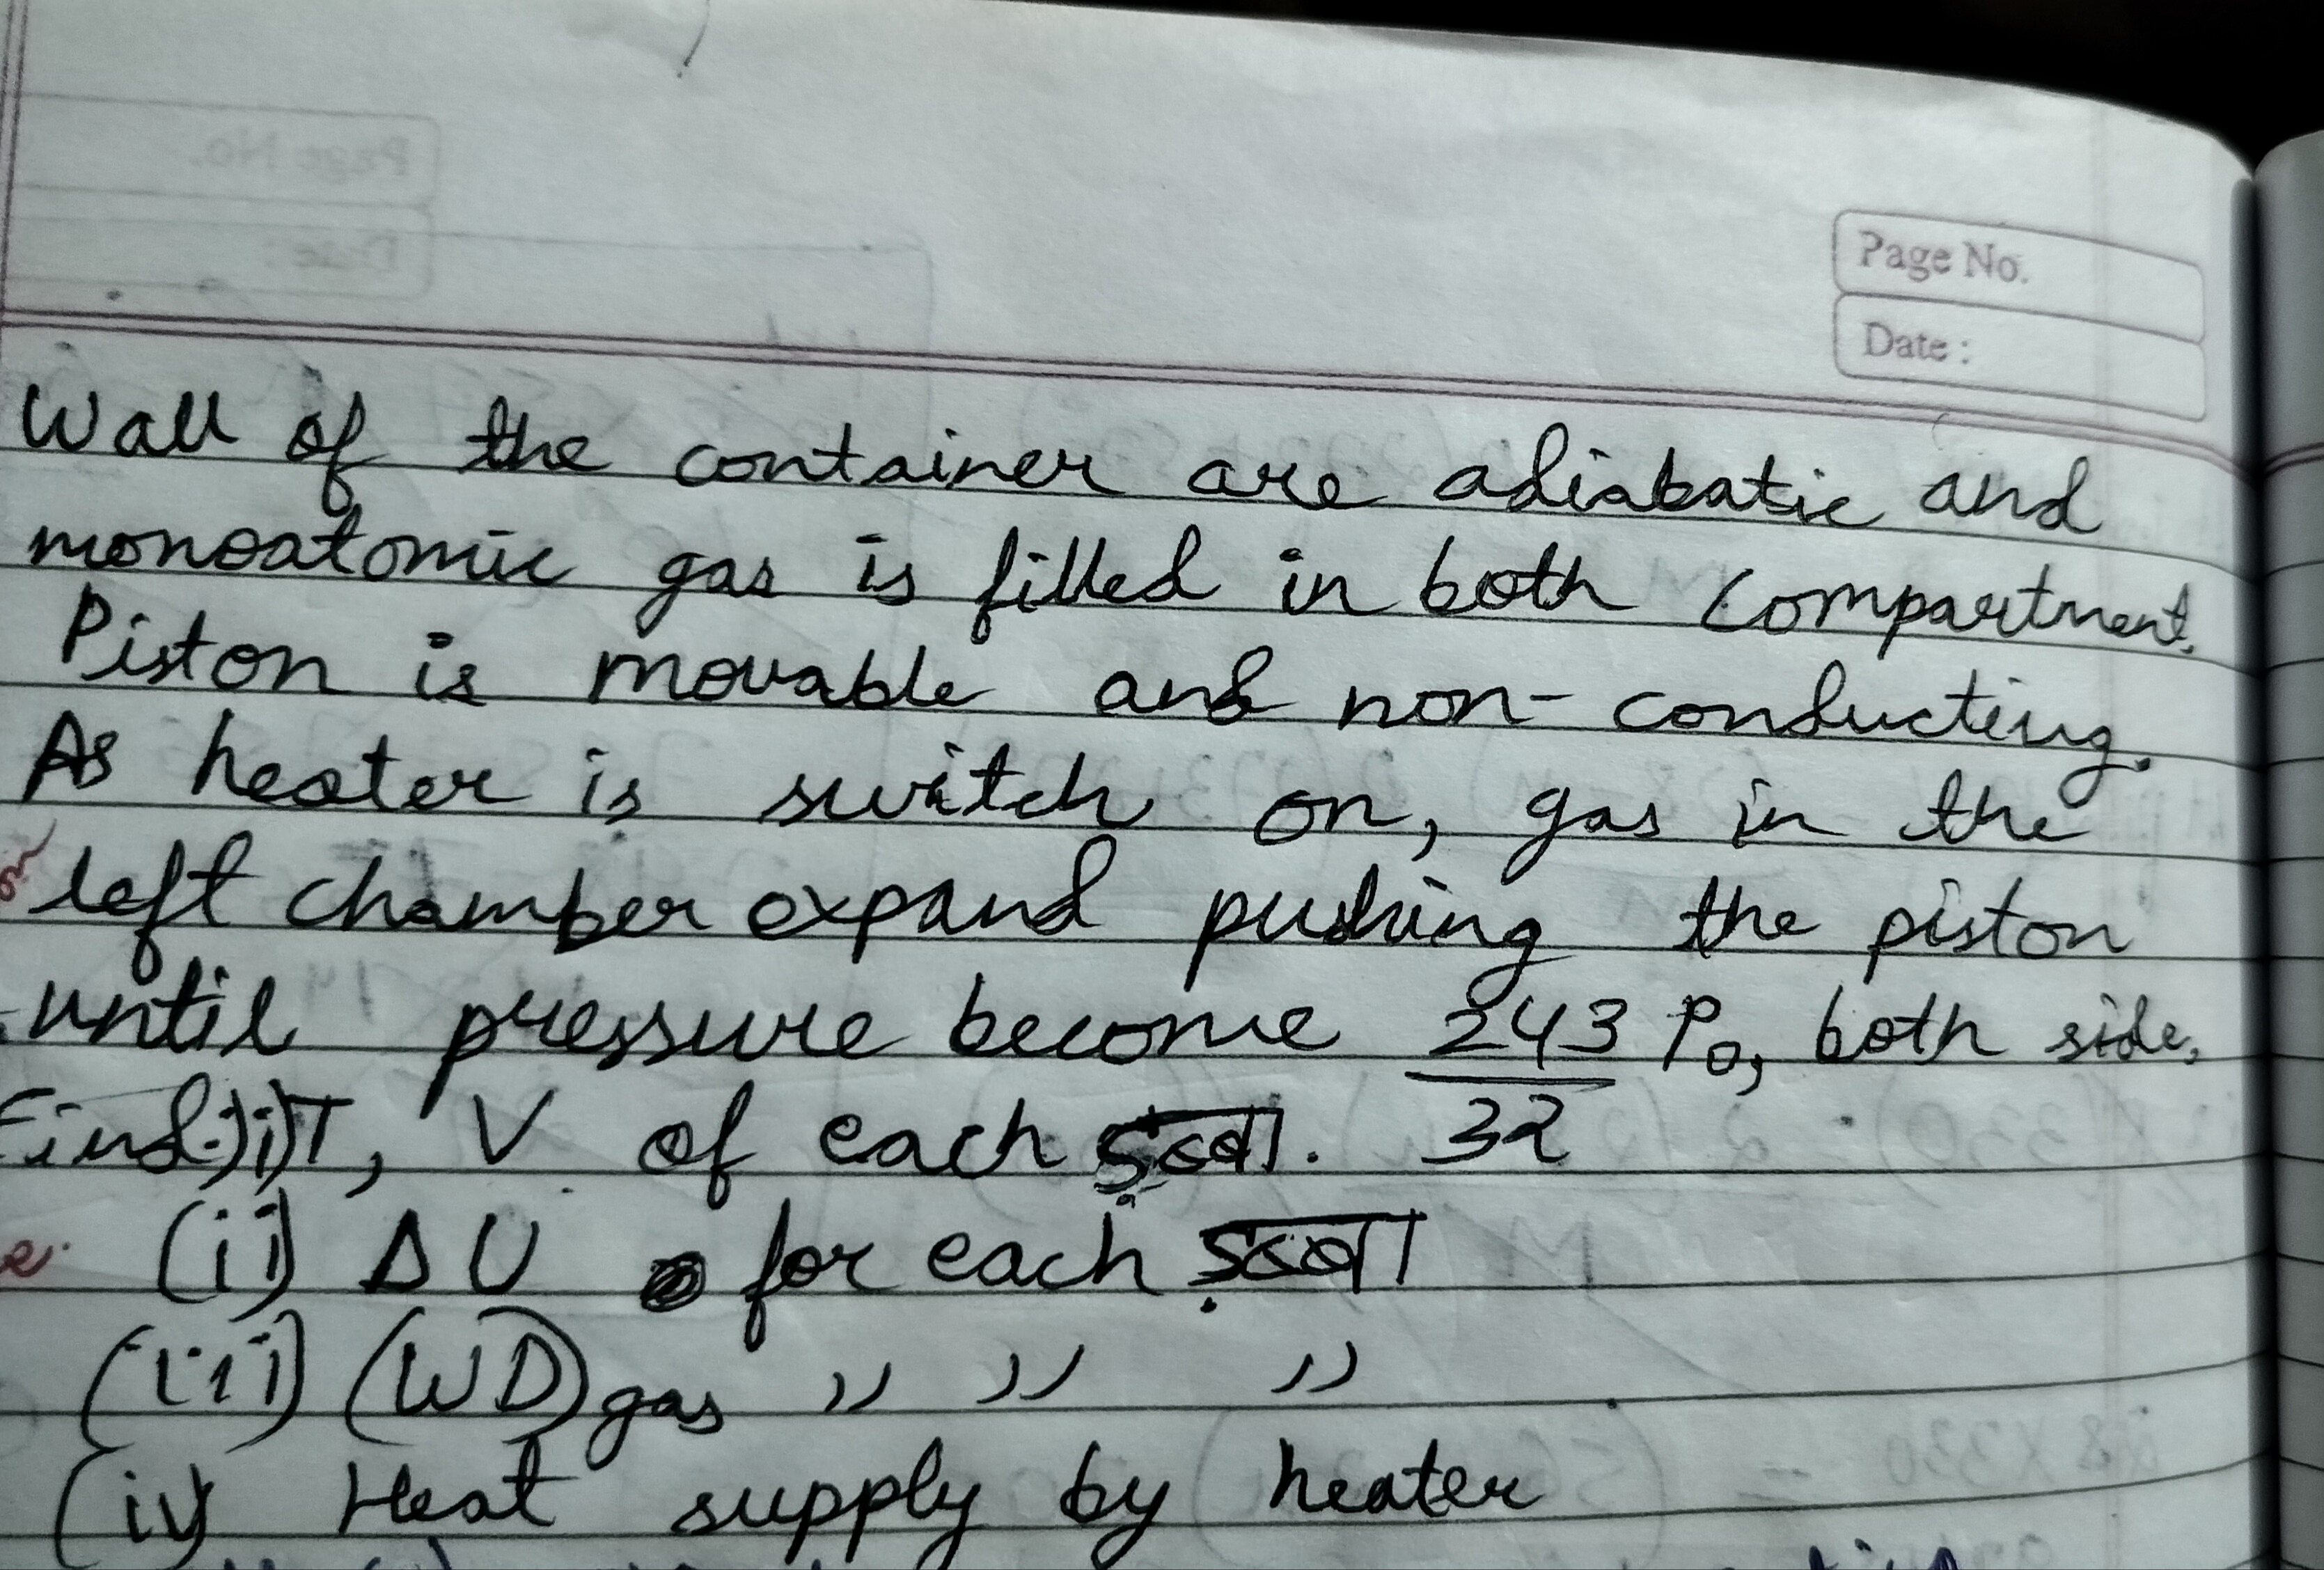 Page No.
Date :
Wall of the container are adiabatic and
monoatomic gas is filled in both compartment.
Piston is movable and non-conducting.
As heater is switch on, gas in the
left chamber expand pushing the piston
until pressure become 243/32 P₀, both side,
Find:) i) T, V of each डब्बा.
(ii) ΔU for each डब्बा
(iii) (WD)gas ,, ,, ,,
(iv) Heat supply by heater